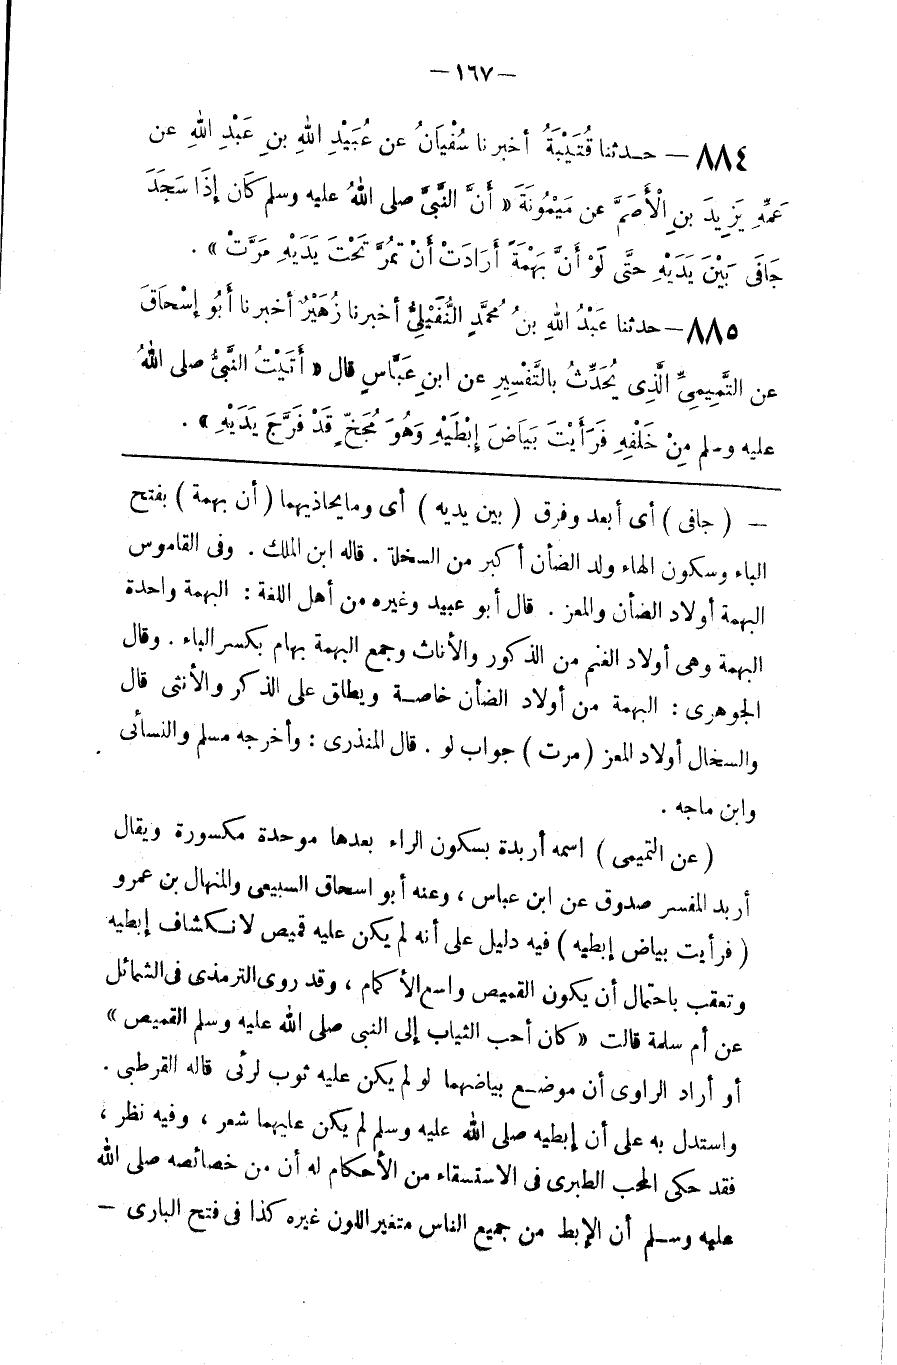 —١٦٧—
٨٨٤ — حدثنا قُتَيْبَةُ أخبرنا سُفْيَانُ عن عُبَيْدِ اللهِ بنِ عَبْدِ اللهِ عن
عَمِّهِ يَزِيدَ بنِ الْأَصَمَّ عن مَيْمُونَةَ « أَنَّ النَّبِىَّ صلى اللهُ عليه وسلم كَان إِذَا سَجَدَ
جَافَى بَيْنَ يَدَيْهِ حتَّى لَوْ أَنَّ بَهْمَةً أَرَادَتْ أَنْ تَمُرَّ تَحْتَ يَدَيْهِ مَرَّتْ » .
٨٨٥ — حدثنا عَبْدُ اللهِ بنُ مُحمَّدٍ النُّفَيْلِىُّ أخبرنا زُهَيْرٌ أخبرنا أَبُو إسْحَاقَ
عن التَّمِيمِىِّ الَّذِى يُحَدِّثُ بالتَّفْسِيرِ عن ابنِ عَبَّاسٍ قال « أَتَيْتُ النَّبِىَّ صلى اللهُ
عليه وسلم مِنْ خَلْفِهِ فَرَأَيْتَ بَيَاضَ إِبْطَيْهِ وَهُوَ مُجَخٍّ قَدْ فَرَّجَ يَدَيْهِ » .
— ( جافى ) أى أبعد وفرق ( بين يديه ) أى وما يحاذيهما ( أن بهمة ) بفتح
الباء وسكون الهاء ولد الضأن أكبر من السخلة . قاله ابن الملك . وفى القاموس
البهمة أولاد الضأن والمعز . قال أبو عبيد وغيره من أهل اللغة : البهمة واحدة
البهمة وهى أولاد الغنم من الذكور والأناث وجمع البهمة بهام بكسر الباء . وقال
الجوهرى : البهمة من أولاد الضأن خاصة ويطلق على الذكر والأنثى قال
والسخال أولاد المعز ( مرت ) جواب لو . قال المنذرى : وأخرجه مسلم والنسائى
وابن ماجه .
( عن التميمى ) اسمه أربدة بسكون الراء بعدها موحدة مكسورة ويقال
أربد المفسر صدوق عن ابن عباس ، وعنه أبو اسحاق السبيعى والمنهال بن عمرو
( فرأيت بياض إبطيه ) فيه دليل على أنه لم يكن عليه قميص لانكشاف إبطيه
وتعقب باحتمال أن يكون القميص واسع الأكمام ، وقد روى الترمذى فى الشمائل
عن أم سلمة قالت « كان أحب الثياب إلى النبى صلى الله عليه وسلم القميص »
أو أراد الراوى أن موضع بياضهما لو لم يكن عليه ثوب لرئى قاله القرطبى .
واستدل به على أن إبطيه صلى الله عليه وسلم لم يكن عليهما شعر ، وفيه نظر ،
فقد حكى المحب الطبرى فى الاستسقاء من الأحكام له أن من خصائصه صلى الله
عليه وسلم أن الإبط من جميع الناس متغير اللون غيره كذا فى فتح البارى —